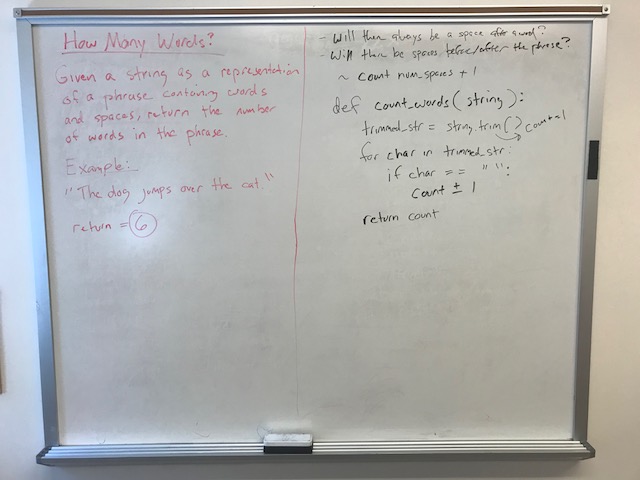 How Many Words?
Given a string as a representation
of a phrase containing words
and spaces, return the number
of words in the phrase.
Example:
"The dog jumps over the cat."
return = 6
- Will there always be a space after a word?
- Will there be spaces before/after the phrase?
~ count num_spaces + 1
def count_words(string):
trimmed_str = string.trim() count=1
for char in trimmed_str:
if char == " ":
count ± 1
return count